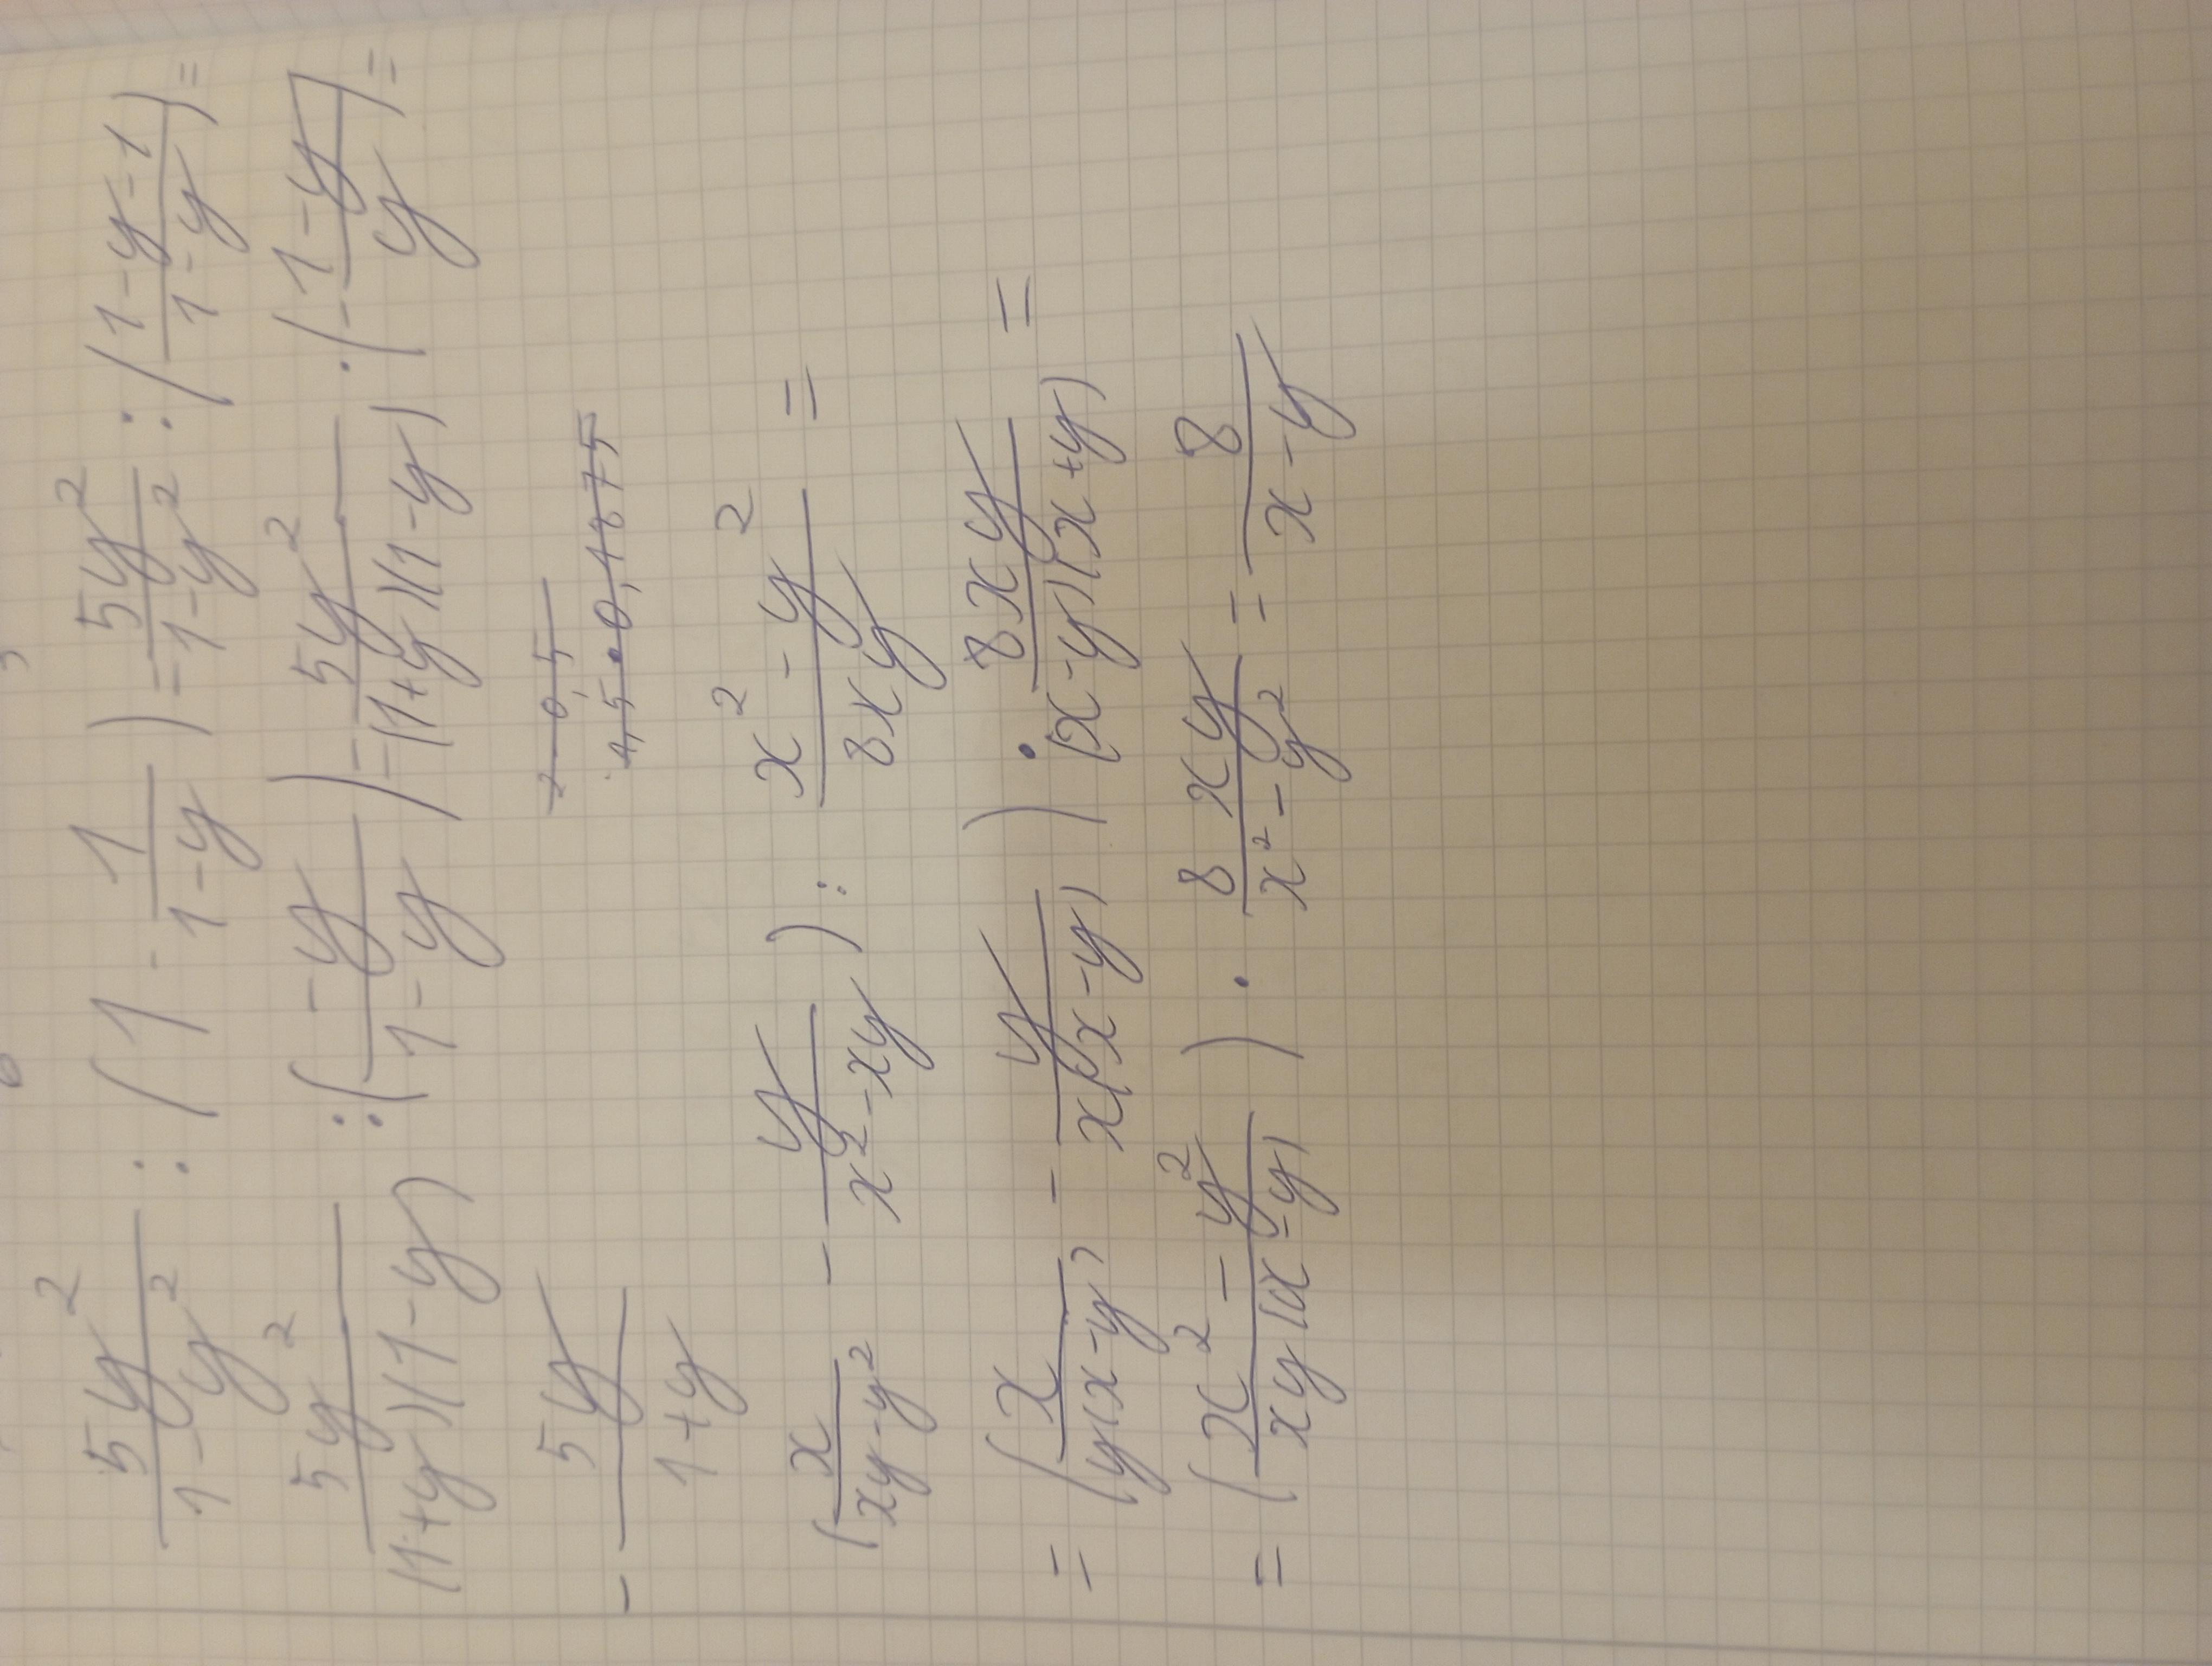 5y²/(1-y²) : (1 - 1/(1-y)) = 5y²/(1-y²) : ((1-y-1)/(1-y)) =
5y²/((1+y)(1-y)) : (-y/(1-y)) = 5y²/((1+y)(1-y)) · (-(1-y)/y) =
- 5y/(1+y)
(x/(xy-y²) - y/(x²-xy)) : (x²-y²)/(8xy) =
= (x/(y(x-y)) - y/(x(x-y))) · 8xy/((x-y)(x+y)) =
= ((x²-y²)/(xy(x-y))) · 8xy/(x²-y²) = 8/(x-y)